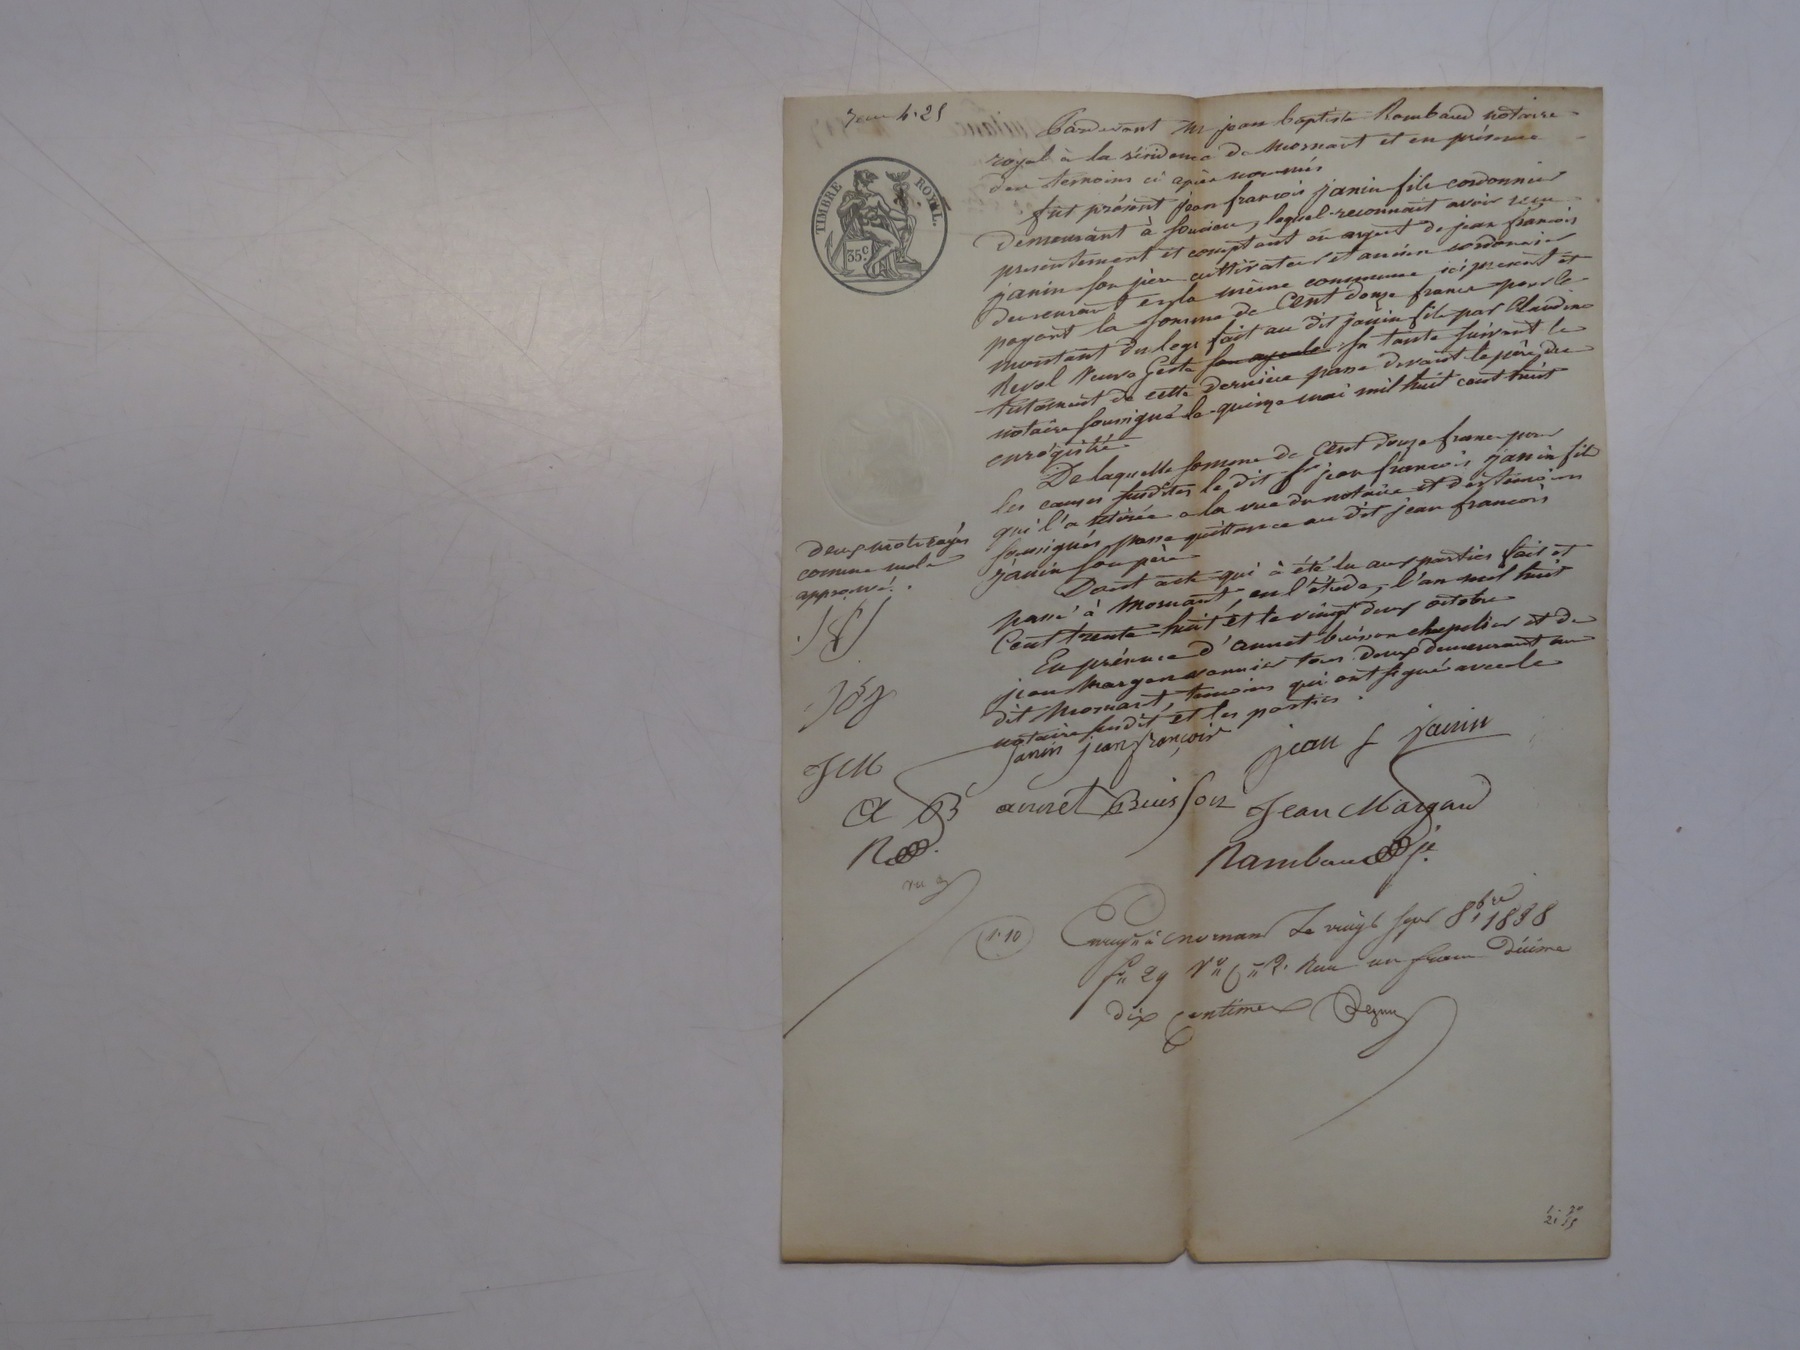 4.25
Pardevant Me jean baptiste Rambaud notaire
royal à la résidence de Mornant et en présence
des temoins ci après nommés
fut présent jean françois janin fils cordonnier
demeurant à soucieu, lequel reconnait avoir recu
presentement et comptant en argent de jean françois
janin son père cultivateur et ancien cordonnier
demeurant en la même commune ici present et
payant la somme de Cent douze francs pour le
montant du legs fait au dit janin fils par Claudine
Revol Veuve sa tante suivant le
testament de cette dernière passé devant le père du
notaire soussigné le quinze mai mil huit cent huit
enrégistré.
De laquelle somme de Cent douze francs pour
les causes susdites le dit jean françois janin fils
qui l'a retirée a la vue du notaire et des témoins
soussignés, passe quittance au dit jean françois
janin son père
Dont acte qui à été lu aux parties fait et
passé à Mornant, en l'étude, l'an mil huit
Cent trente-huit et le vingt deux octobre
En présence d'annet buisson chapelier et de
jean Margand vannier tous deux demeurant au
dit Mornant, temoins qui ont signé avec le
notaire susdit et les parties.
deux mots rayés
comme nuls
approuvé.
janin jean françois jean f janin
JM
A B annet Buisson Jean Margand
R Rambaud
1.10
Enregré à mornant Le vingt sept 8bre 1838
fo 29 Vo Ce 2. Reçu un franc Décime
dix centimes
TIMBRE ROYAL
35 C.